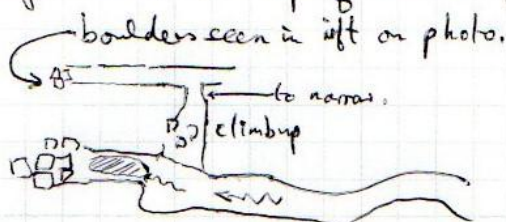 boulders seen in rift on photo.
to narrow.
climb up